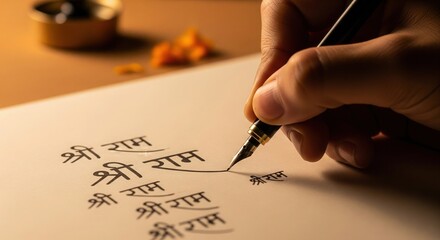 श्री राम
श्री राम
श्री राम
श्री राम
श्री राम
श्री राम